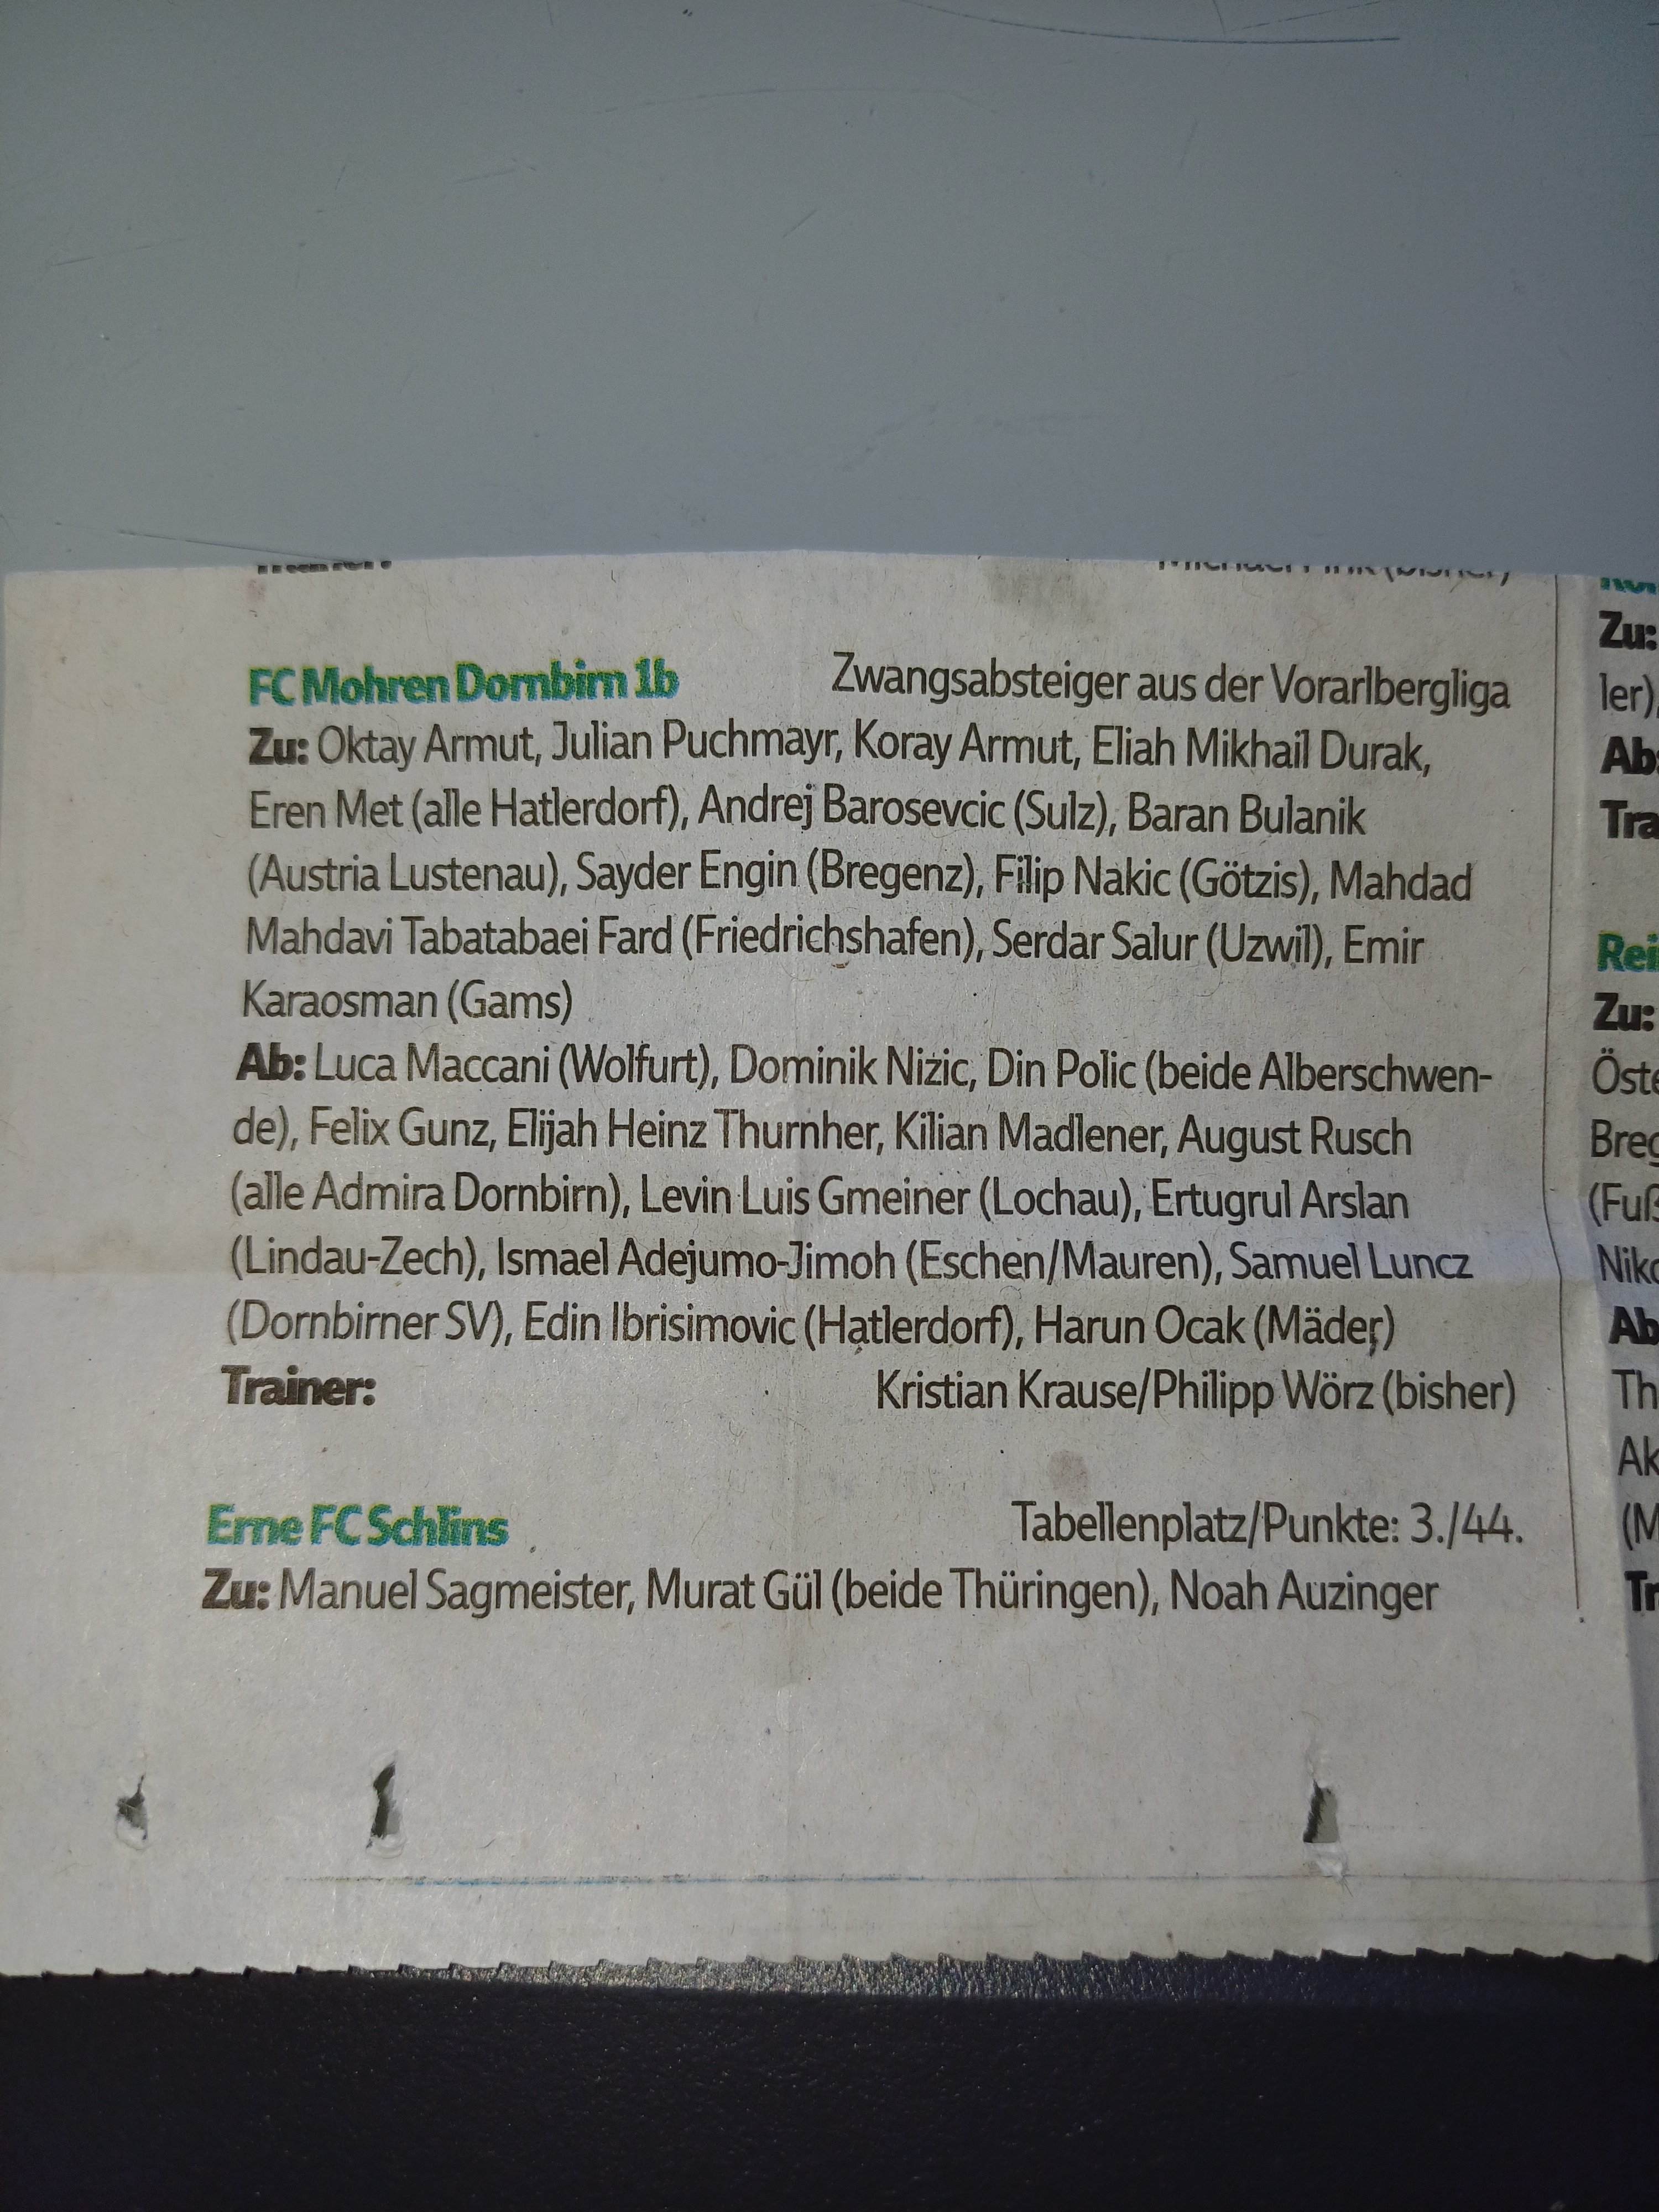 FC Mohren Dornbirn 1b Zwangsabsteiger aus der Vorarlbergliga
Zu: Oktay Armut, Julian Puchmayr, Koray Armut, Eliah Mikhail Durak,
Eren Met (alle Hatlerdorf), Andrej Barosevcic (Sulz), Baran Bulanik
(Austria Lustenau), Sayder Engin (Bregenz), Filip Nakic (Götzis), Mahdad
Mahdavi Tabatabaei Fard (Friedrichshafen), Serdar Salur (Uzwil), Emir
Karaosman (Gams)
Ab: Luca Maccani (Wolfurt), Dominik Nizic, Din Polic (beide Alberschwen-
de), Felix Gunz, Elijah Heinz Thurnher, Kilian Madlener, August Rusch
(alle Admira Dornbirn), Levin Luis Gmeiner (Lochau), Ertugrul Arslan
(Lindau-Zech), Ismael Adejumo-Jimoh (Eschen/Mauren), Samuel Luncz
(Dornbirner SV), Edin Ibrisimovic (Hatlerdorf), Harun Ocak (Mäder)
Trainer: Kristian Krause/Philipp Wörz (bisher)
Erne FC Schlins Tabellenplatz/Punkte: 3./44.
Zu: Manuel Sagmeister, Murat Gül (beide Thüringen), Noah Auzinger
Zu:
ler),
Ab:
Tra
Rei
Zu:
Öste
Breg
(Fuß
Niko
Ab
Th
Ak
(M
Tr